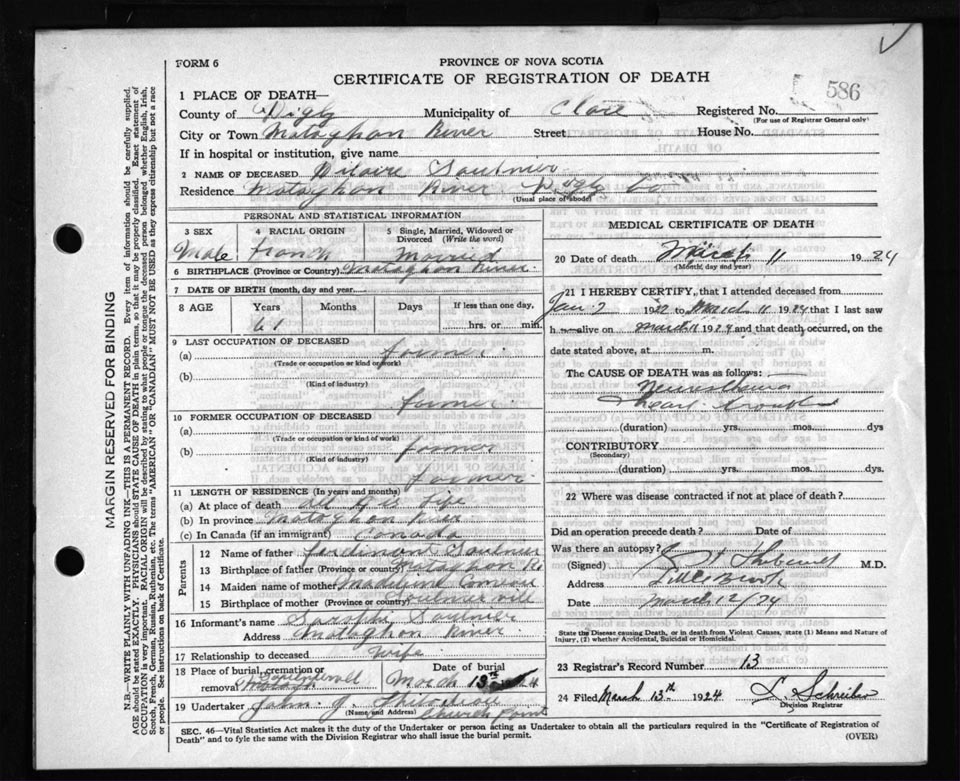 FORM 6
PROVINCE OF NOVA SCOTIA
CERTIFICATE OF REGISTRATION OF DEATH
586
1 PLACE OF DEATH—
County of Digby Municipality of Clare Registered No.
(For use of Registrar General only)
City or Town Mataghan River Street House No.
If in hospital or institution, give name
2 NAME OF DECEASED Hilaire Saulnier
Residence Mataghan River Digby Co
(Usual place of abode)
PERSONAL AND STATISTICAL INFORMATION
3 SEX 4 RACIAL ORIGIN 5 Single, Married, Widowed or Divorced (Write the word)
Male French Married
6 BIRTHPLACE (Province or Country) Mataghan River
7 DATE OF BIRTH (month, day and year)
8 AGE Years Months Days If less than one day,
61 hrs. or min.
9 LAST OCCUPATION OF DECEASED
(a) farmer
(Trade or occupation or kind of work)
(b)
(Kind of industry)
farmer
10 FORMER OCCUPATION OF DECEASED
(a)
(Trade or occupation or kind of work)
(b) farmer
(Kind of industry)
farmer
11 LENGTH OF RESIDENCE (In years and months)
(a) At place of death all his life
(b) In province Mataghan River
(c) In Canada (if an immigrant) Canada
Parents
12 Name of father Ferdinand Saulnier
13 Birthplace of father (Province or Co Mataghan Ri
14 Maiden name of mother Madeline Comeau
15 Birthplace of mother (Province or country) Saulnierville
16 Informant's name Saulnier
Address Mataghan River
17 Relationship to deceased Wife
18 Place of burial, cremation or removal Saulnierville Date of burial
March 13th 1924
19 Undertaker John J. Thibodeau
(Name and Address) Church Point
MEDICAL CERTIFICATE OF DEATH
20 Date of death March 11 1924
(Month, day and year)
21 I HEREBY CERTIFY, that I attended deceased from
Jan 2 1922 to March 11 1924 that I last saw
h alive on March 11 1924 and that death occurred, on the
date stated above, at m.
The CAUSE OF DEATH was as follows:
(duration) yrs. mos. dys
CONTRIBUTORY
(Secondary)
(duration) yrs. mos. dys.
22 Where was disease contracted if not at place of death?
Did an operation precede death? Date of
Was there an autopsy?
(Signed) M.D.
Address
Date March 12/24
State the Disease causing Death, or in death from Violent Causes, state (1) Means and Nature of Injury, (2) whether Accidental, Suicidal or Homicidal.
23 Registrar's Record Number 13
24 Filed March 13th 1924 Schreiber
Division Registrar
SEC. 46—Vital Statistics Act makes it the duty of the Undertaker or person acting as Undertaker to obtain all the particulars required in the "Certificate of Registration of
Death" and to fyle the same with the Division Registrar who shall issue the burial permit. (OVER)
MARGIN RESERVED FOR BINDING
N.B.—WRITE PLAINLY WITH UNFADING INK—THIS IS A PERMANENT RECORD. Every item of information should be carefully supplied.
AGE should be stated EXACTLY. PHYSICIANS should STATE CAUSE OF DEATH in plain terms, so that it may be properly classified. Exact statement of
OCCUPATION is very important. RACIAL ORIGIN will be described by stating to what people or tongue the deceased person belonged, whether English, Irish,
Scotch, French, German, Russian, Ruthenian, etc. The terms "AMERICAN" OR "CANADIAN" MUST NOT BE USED as they express citizenship but not a race
or people. See instructions on back of Certificate.